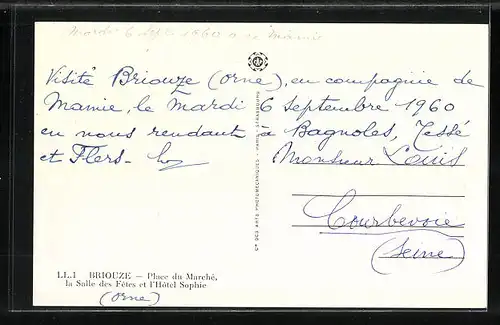 Mardi 6 sept 1960 à la Mamie
Visité Briouze (Orne), en compagnie de
Mamie, le Mardi 6 septembre 1960
en nous rendant à Bagnoles, Tessé
et Flers.
Monsieur Louis
Courbevoie
(Seine)
Cie DES ARTS PHOTOMÉCANIQUES - PARIS-STRASBOURG
LL.1 BRIOUZE — Place du Marché,
la Salle des Fêtes et l'Hôtel Sophie
(Orne)